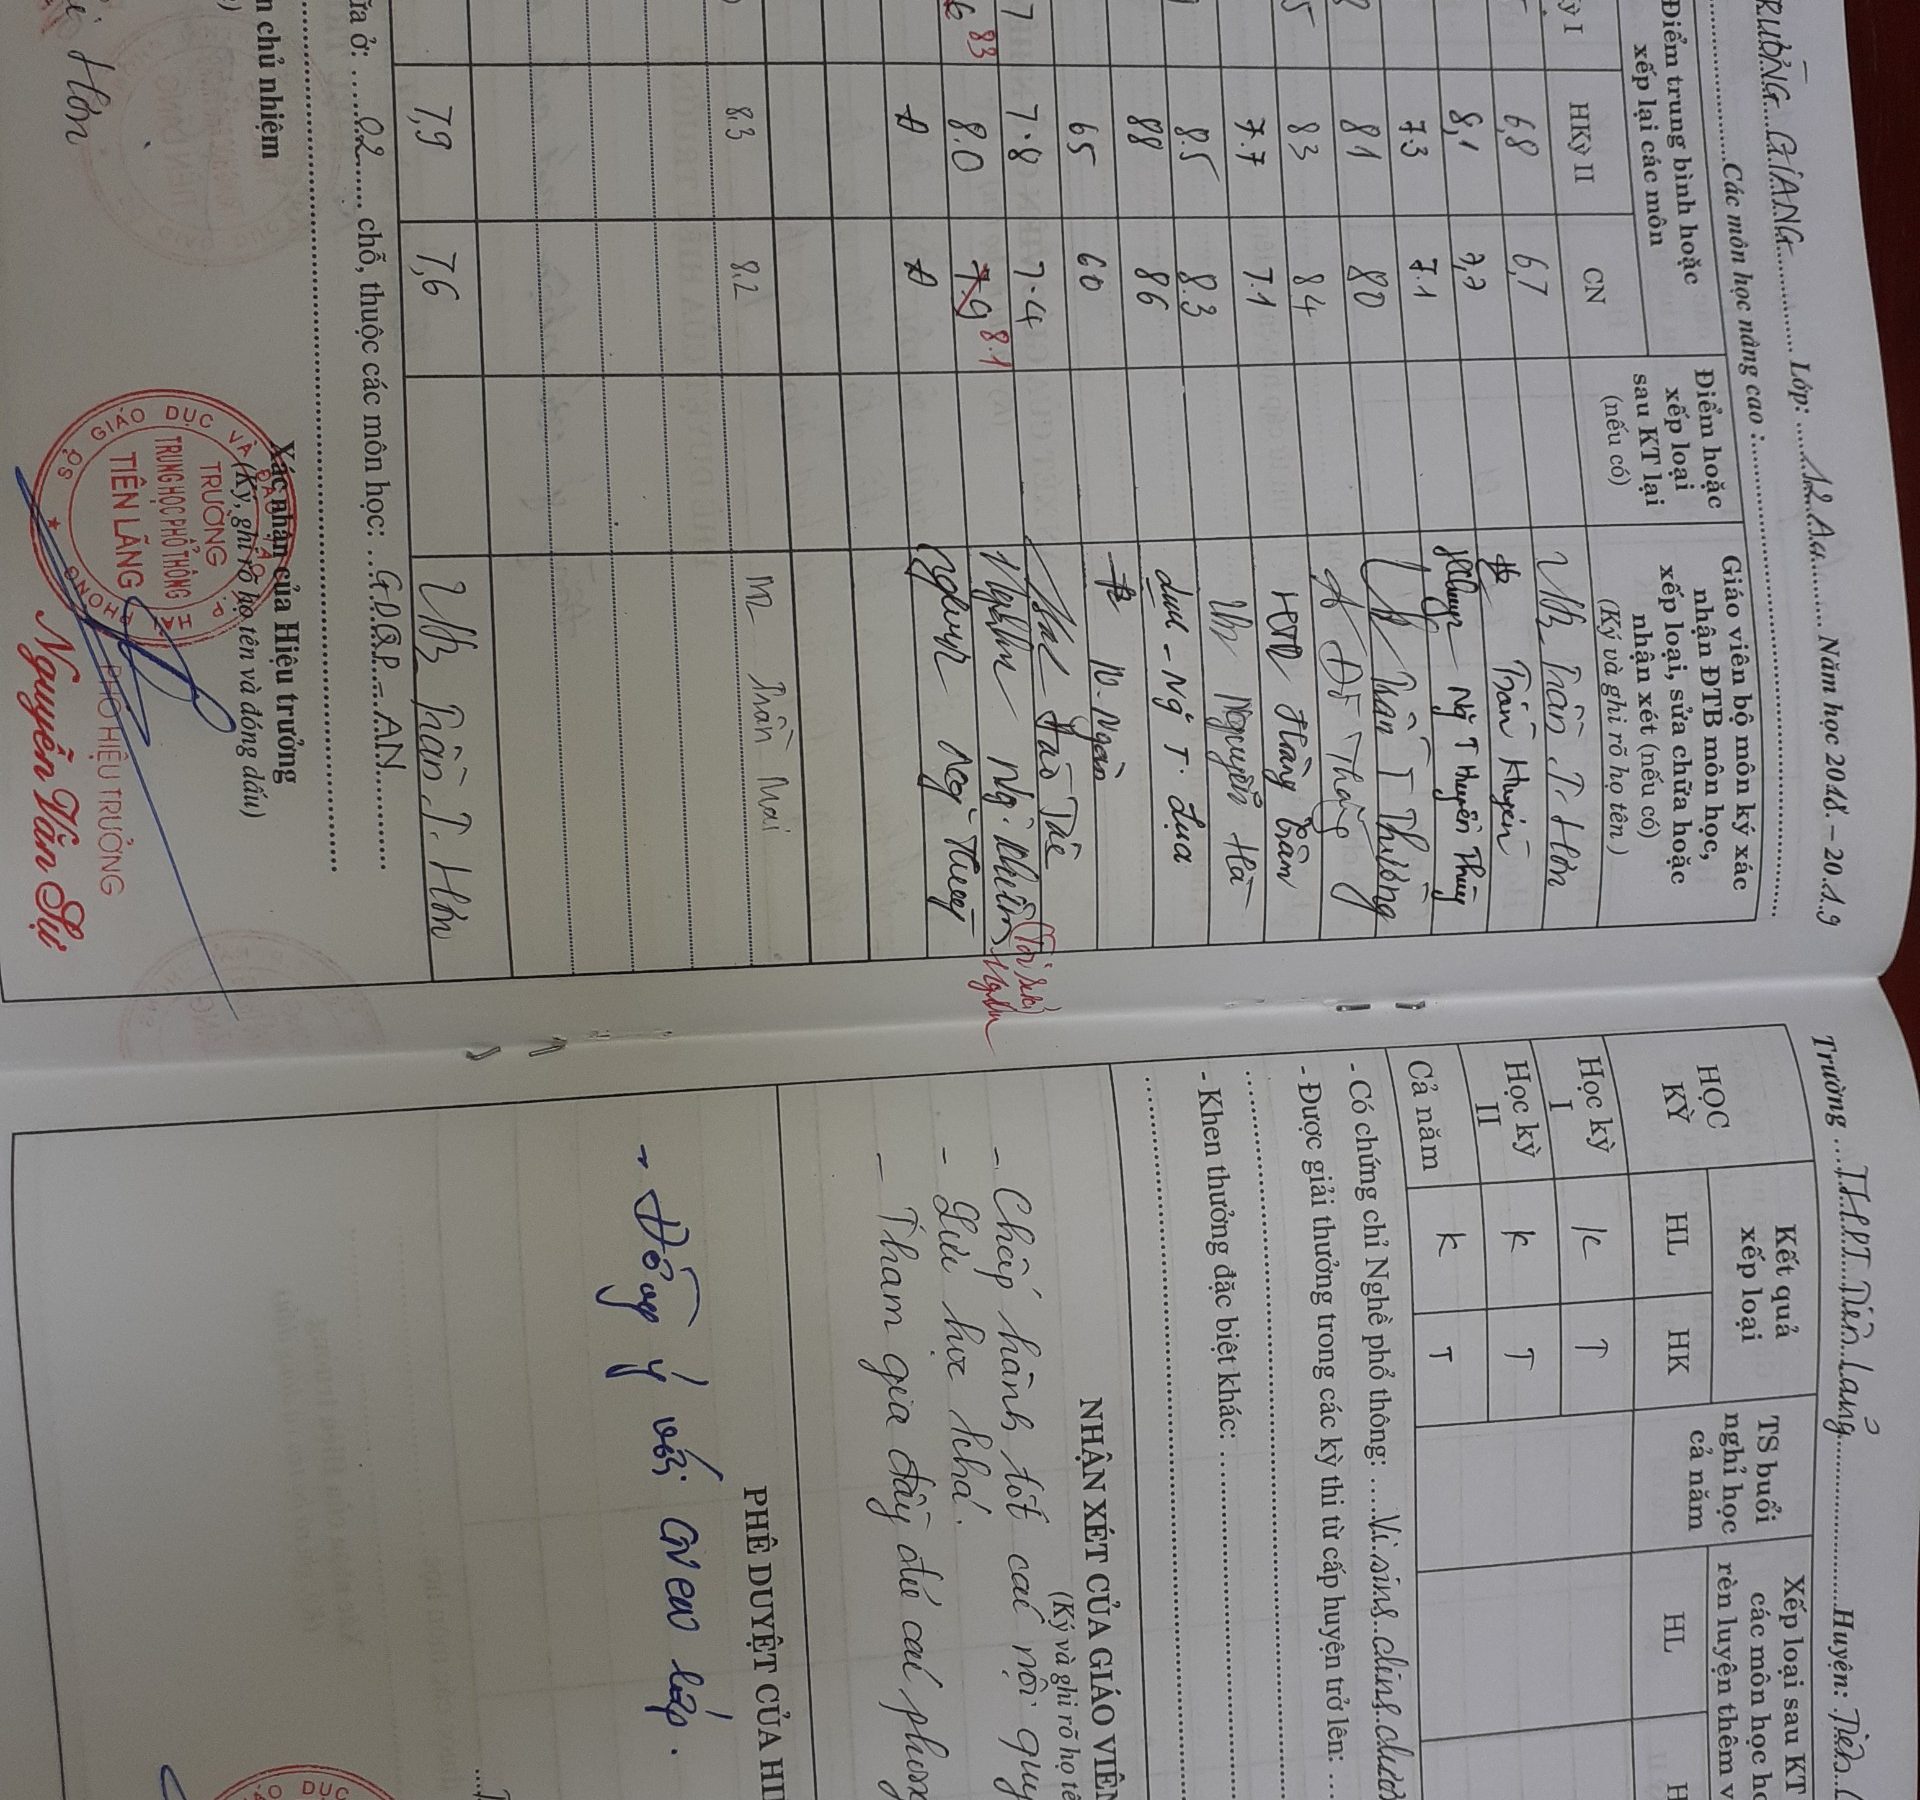 TRƯỜNG GIANG Lớp: 12A4 Năm học 2018 - 2019
Các môn học nâng cao :
Điểm trung bình hoặc
xếp loại các môn
Điểm hoặc
xếp loại
sau KT lại
(nếu có)
Giáo viên bộ môn ký xác
nhận ĐTB môn học,
xếp loại, sửa chữa hoặc
nhận xét (nếu có)
(Ký và ghi rõ họ tên )
HKỳ II CN
6,8 6,7 Trần T. Hơn
8,1 7,7 Trần Huyên
7.3 7.1 Ng T Huyền Thùy
81 80 Trần T Thường
83 84 Đỗ Thắng
7.7 7.1 Hoàng Trâm
8.5 8.3 Nguyễn Hà
88 86 Ng T. Lụa
65 60 Ngân
7.8 7.4
8.0 7.9 8.1 Nghĩu
Đ Đ
8.3 8.2 Trần Mai
7,9 7,6 Trần T. Hơn
ữa ở: 02 chỗ, thuộc các môn học: GDQP - AN
n chủ nhiệm
Hơn
Xác nhận của Hiệu trưởng
(Ký, ghi rõ họ tên và đóng dấu)
SỞ GIÁO DỤC VÀ ĐÀO TẠO
TRƯỜNG
TRUNG HỌC PHỔ THÔNG
TIÊN LÃNG
PHÓ HIỆU TRƯỞNG
Nguyễn Văn Sự
Trường THPT Tiên Lãng Huyện: Tiên
HỌC
KỲ
Kết quả
xếp loại
TS buổi
nghỉ học
cả năm
Xếp loại sau KT
các môn học h
rèn luyện thêm v
HL HK HL H
Học kỳ
I K T
Học kỳ
II K T
Cả năm K T
- Có chứng chỉ Nghề phổ thông:
- Được giải thưởng trong các kỳ thi từ cấp huyện trở lên:
- Khen thưởng đặc biệt khác:
NHẬN XÉT CỦA GIÁO VIÊN
(Ký và ghi rõ họ tê
- Chấp hành tốt các nội quy
- Lực học khá.
- Tham gia đầy đủ các phong
PHÊ DUYỆT CỦA HI
- Đồng ý với GVCN lớp.